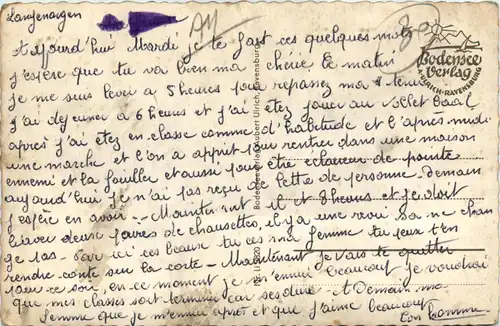 Langenargen
Aujourd'hui Mardi je te fait ces quelques mots
j'espère que tu va bien ma chérie le matin
je me suis lever a 5 heures pour repassez ma tenue
j'ai dejeuner a 6 heures et j'ai étez jouer au volet baal
après j'ai étez en classe comme d'habitude et l'après midi
une marche et l'on a apprit pour rentrer dans une maison
ennemi et la fouille et aussi pour être éclaireur de pointe
aujourd'hui je n'ai pas reçu de lettre de personne Demain
j'espère en avoir. Maintenant il et 9 heures et je doit
laver deux paires de chaussettes, il y a une revue
je t'as ici ces beaux tu ces ma femme tu peux t'en
rendre conte sur la carte - Maintenant je vais te quitter
pour ce soir, en ce moment je m'ennui beaucoup je voudrai
que mes classes soit terminer car ses dure et Demain ma
femme que je m'ennui après et que j'aime beaucoup
Ton homme
Bodensee
Verlag
A. ULRICH-RAVENSBURG
Bodensee-Verlag Hubert Ulrich, Ravensburg